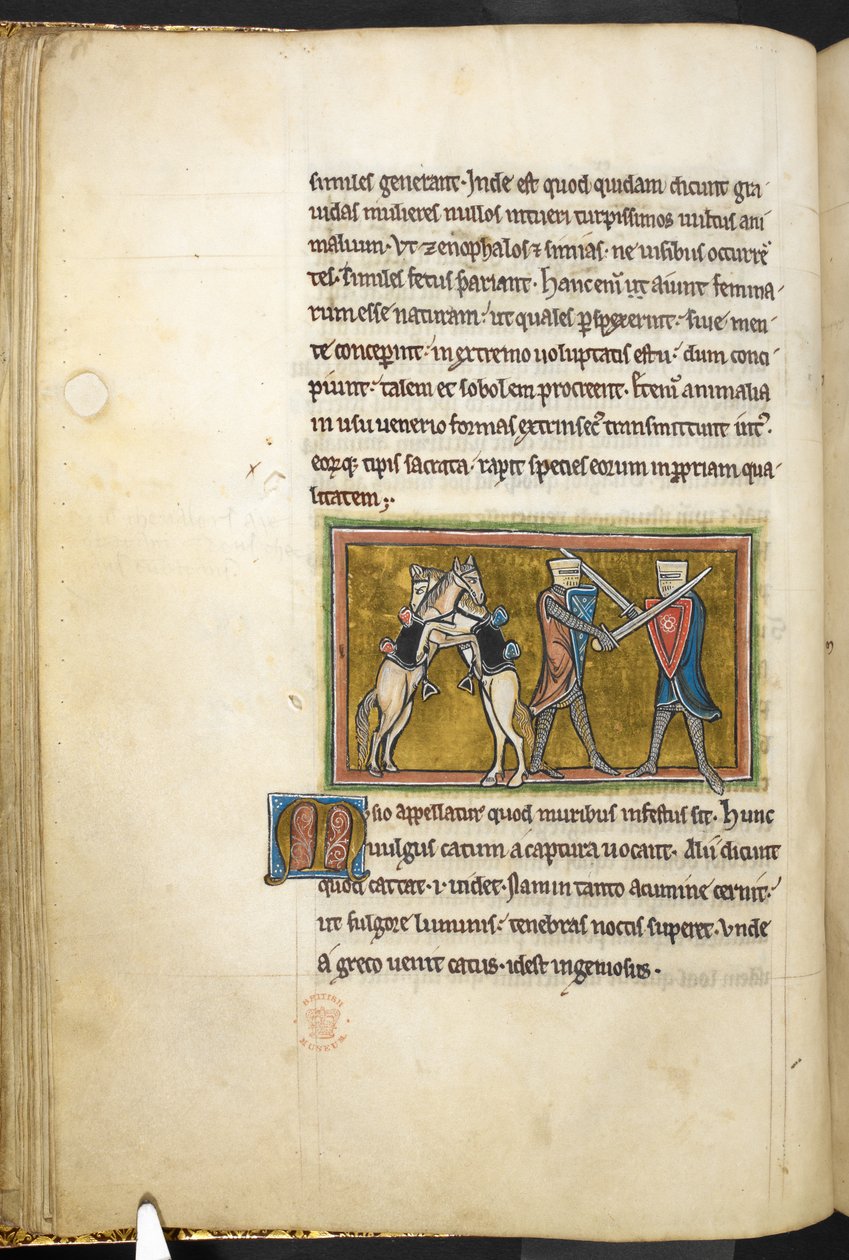 similes generant. Inde est quod quidam dicunt gra
uidas mulieres nullos intueri turpissimos uultus ani
malium. Vt zenophalos ⁊ simias. ne uisibus occurrē
tes. similes fetus pariant. Hanc enī ut aiunt femina
rum esse naturam. ut quales ꝑspexerint. siue men
te conceꝑint. in extremo uoluptatis estu. dum conci
piunt. talem et sobolem procreent. Etenī animalia
in usu uenerio formas extrinsecꝰ transmittunt intꝰ.
eoꝝqꝫ tipis saciata. rapit species eorum in ꝓpriam qua
litatem.
Musio appellatur quod muribus infestus sit. Hunc
uulgus catum a captura uocant. Alii dicunt
quod cattat .i. uidet. Nam in tanto acumine cernit.
ut fulgore luminis. tenebras noctis superet. Vnde
a greco uenit catus. idest ingeniosus.
BRITISH
MUSEUM